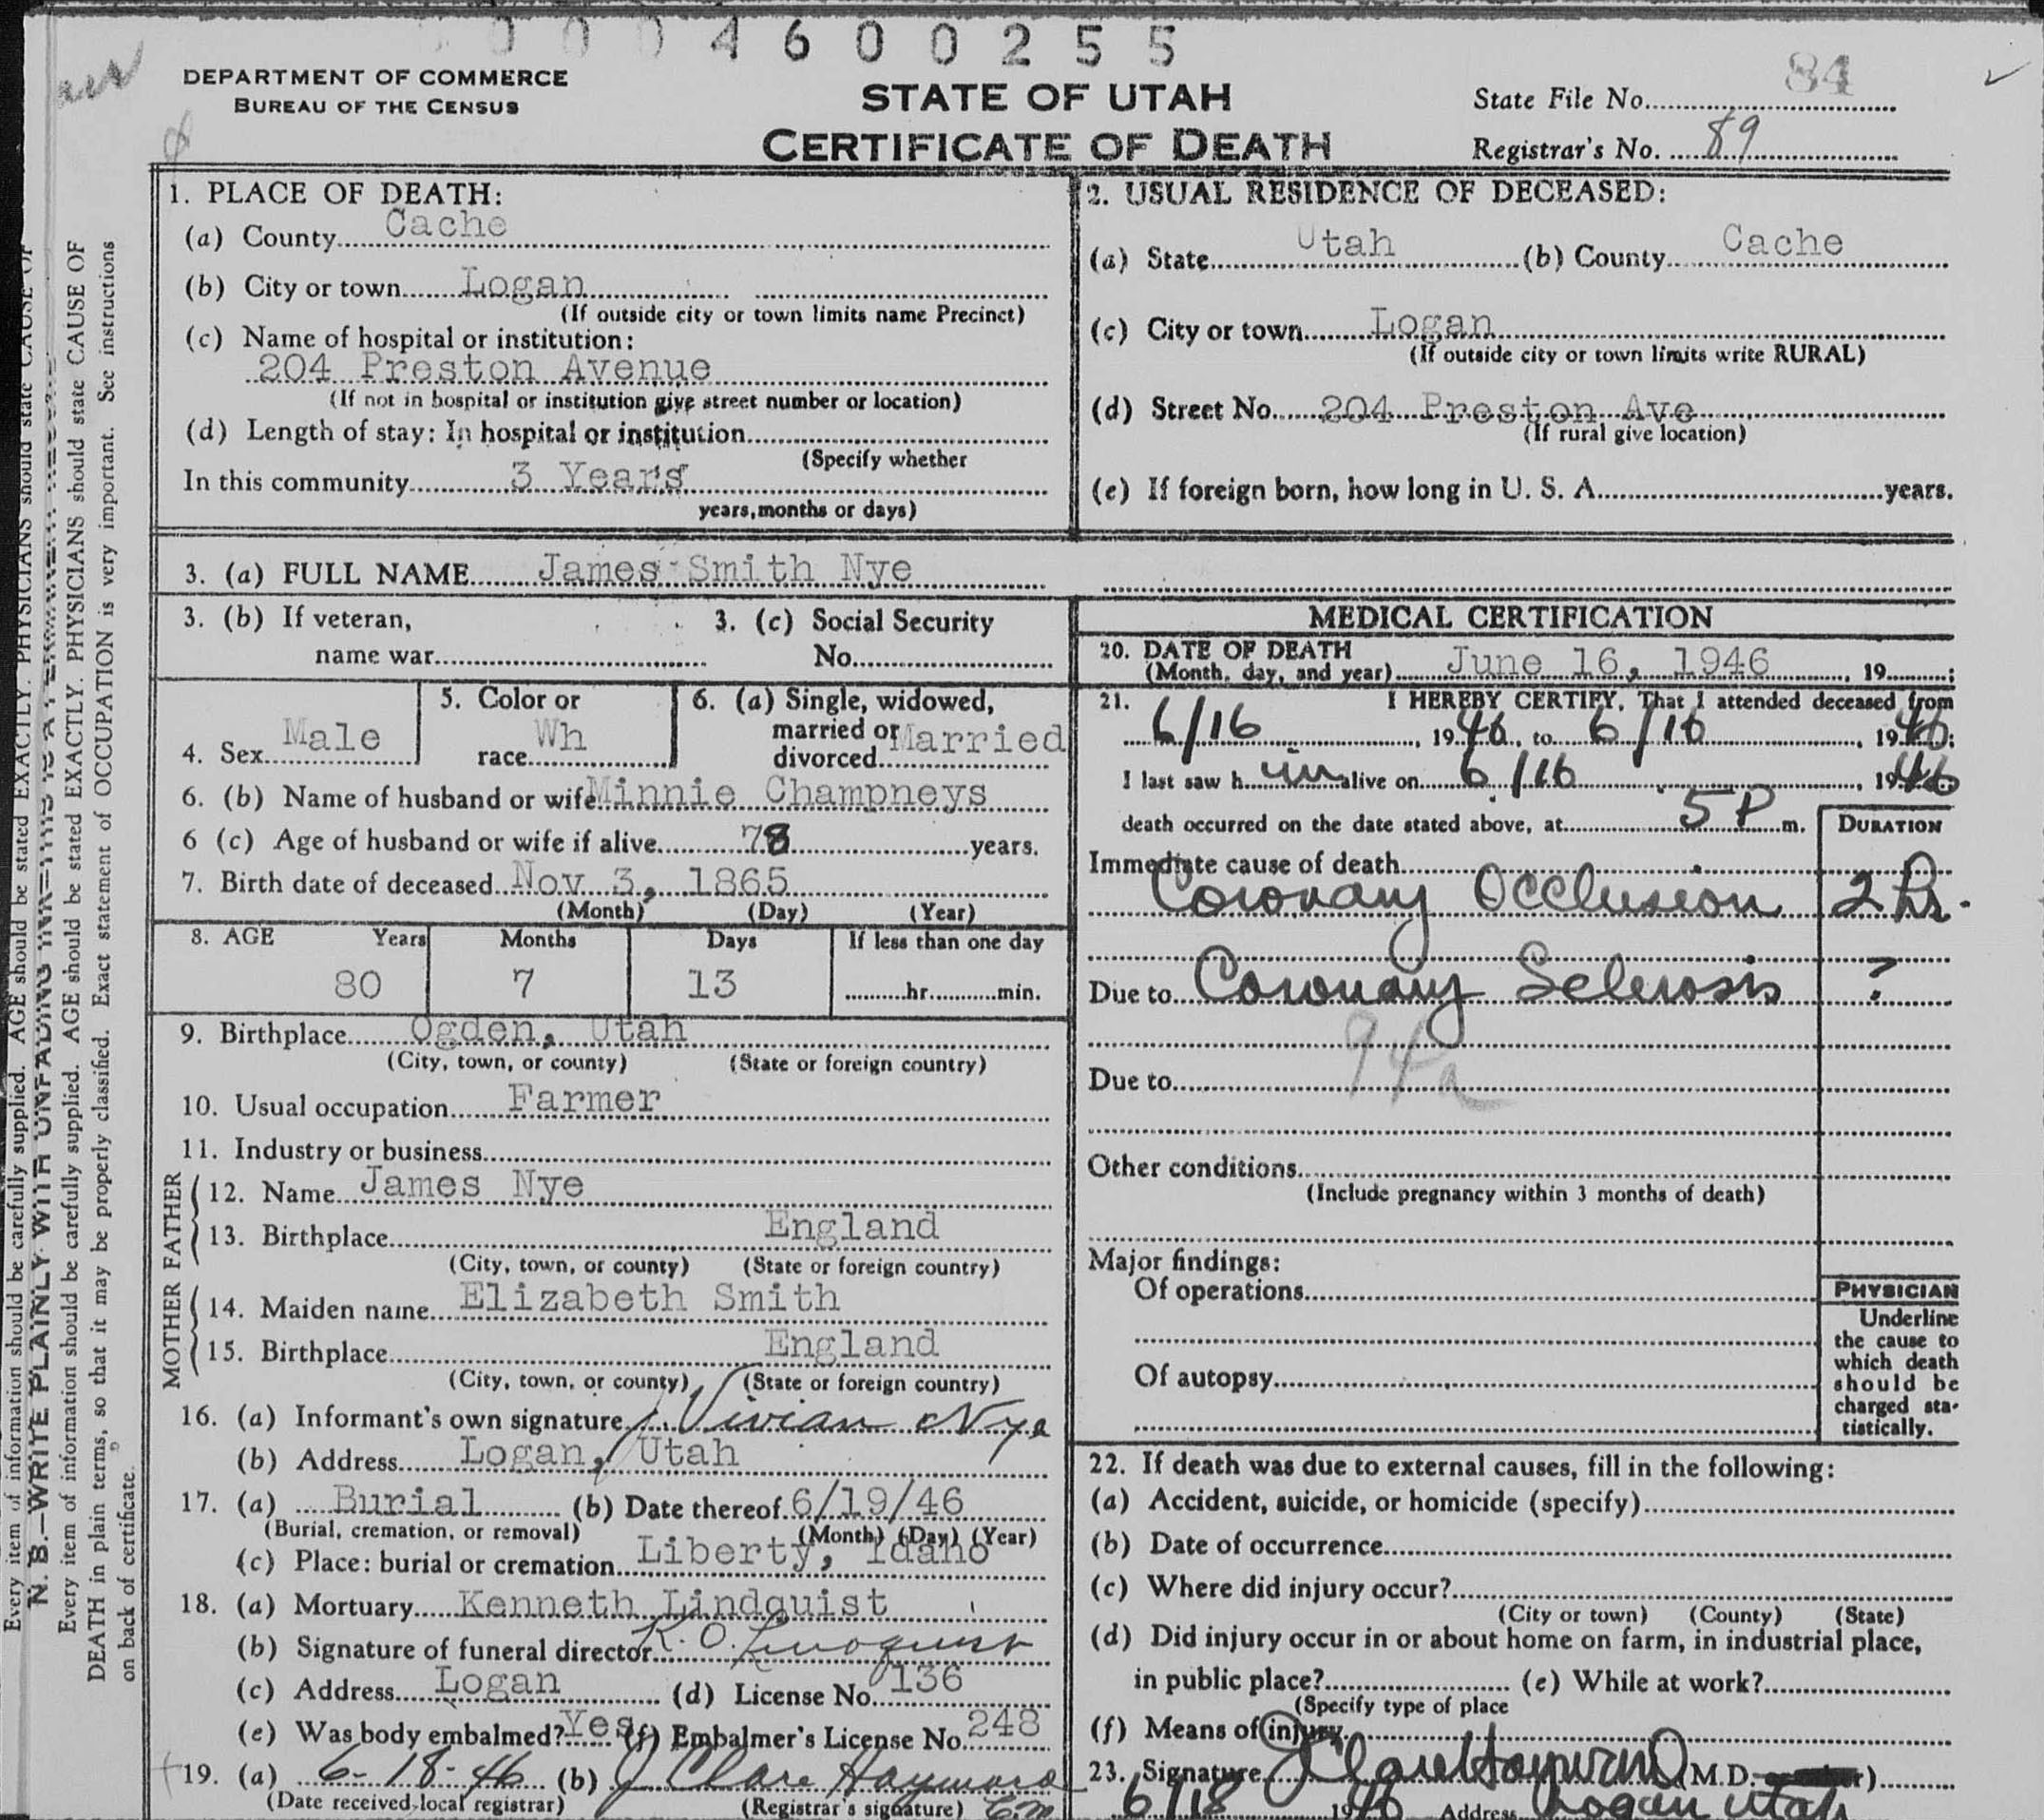 0 0 0 4 6 0 0 2 5 5
DEPARTMENT OF COMMERCE
BUREAU OF THE CENSUS
STATE OF UTAH
CERTIFICATE OF DEATH
State File No. 84
Registrar's No. 89
1. PLACE OF DEATH:
(a) County Cache
(b) City or town Logan
(If outside city or town limits name Precinct)
(c) Name of hospital or institution:
204 Preston Avenue
(If not in hospital or institution give street number or location)
(d) Length of stay: In hospital or institution
(Specify whether
In this community 3 Years
years, months or days)
2. USUAL RESIDENCE OF DECEASED:
(a) State Utah (b) County Cache
(c) City or town Logan
(If outside city or town limits write RURAL)
(d) Street No. 204 Preston Ave
(If rural give location)
(e) If foreign born, how long in U. S. A. years.
3. (a) FULL NAME James Smith Nye
3. (b) If veteran,
name war
3. (c) Social Security
No.
4. Sex Male
5. Color or
race Wh
6. (a) Single, widowed,
married or
divorced Married
6. (b) Name of husband or wife Minnie Champneys
6 (c) Age of husband or wife if alive 78 years.
7. Birth date of deceased Nov 3, 1865
(Month) (Day) (Year)
8. AGE Years Months Days If less than one day
80 7 13 hr. min.
9. Birthplace Ogden, Utah
(City, town, or county) (State or foreign country)
10. Usual occupation Farmer
11. Industry or business
FATHER
12. Name James Nye
13. Birthplace England
(City, town, or county) (State or foreign country)
MOTHER
14. Maiden name Elizabeth Smith
15. Birthplace England
(City, town, or county) (State or foreign country)
16. (a) Informant's own signature Vivian Nye
(b) Address Logan, Utah
17. (a) Burial (b) Date thereof 6/19/46
(Burial, cremation, or removal) (Month) (Day) (Year)
(c) Place: burial or cremation Liberty, Idaho
18. (a) Mortuary Kenneth Lindquist
(b) Signature of funeral director K. O. Lindquist
(c) Address Logan (d) License No. 136
(e) Was body embalmed? Yes (f) Embalmer's License No. 248
19. (a) 6-18-46 (b) J Clare Hayward
(Date received local registrar) (Registrar's signature)
MEDICAL CERTIFICATION
20. DATE OF DEATH
(Month, day, and year) June 16, 1946, 19 ;
21. I HEREBY CERTIFY, That I attended deceased from
6/16, 1946, to 6/16, 1946;
I last saw h im alive on 6/16, 1946
death occurred on the date stated above, at 5 P m.
DURATION
Immediate cause of death
Coronary Occlusion 2 hr.
Due to Coronary Sclerosis ?
94a
Due to
Other conditions
(Include pregnancy within 3 months of death)
Major findings:
Of operations
Of autopsy
PHYSICIAN
Underline
the cause to
which death
should be
charged sta-
tistically.
22. If death was due to external causes, fill in the following:
(a) Accident, suicide, or homicide (specify)
(b) Date of occurrence
(c) Where did injury occur?
(City or town) (County) (State)
(d) Did injury occur in or about home on farm, in industrial place,
in public place? (e) While at work?
(Specify type of place
(f) Means of injury
23. Signature J Clare Hayward (M.D. )
6/18 1946 Address Logan Utah
N. B.—WRITE PLAINLY WITH UNFADING INK—THIS IS A PERMANENT RECORD
Every item of information should be carefully supplied. AGE should be stated EXACTLY. PHYSICIANS should state CAUSE OF
Every item of information should be carefully supplied. AGE should be stated EXACTLY. PHYSICIANS should state CAUSE OF
DEATH in plain terms, so that it may be properly classified. Exact statement of OCCUPATION is very important. See instructions
on back of certificate.